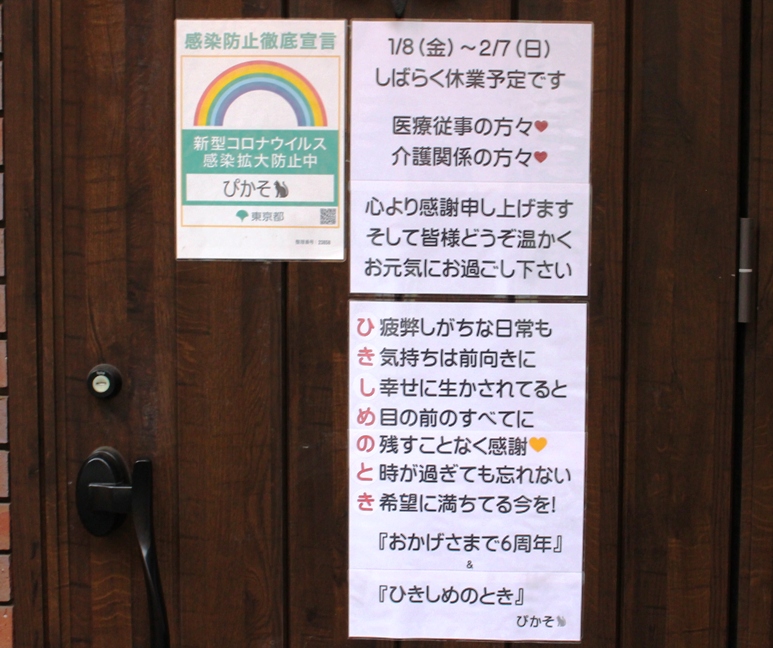 感染防止徹底宣言
新型コロナウイルス
感染拡大防止中
ぴかそ
東京都
1/8(金)～2/7(日)
しばらく休業予定です
医療従事の方々♥
介護関係の方々♥
心より感謝申し上げます
そして皆様どうぞ温かく
お元気にお過ごし下さい
ひ 疲弊しがちな日常も
き 気持ちは前向きに
し 幸せに生かされてると
め 目の前のすべてに
の 残すことなく感謝🧡
と 時が過ぎても忘れない
き 希望に満ちてる今を!
『おかげさまで6周年』
&
『ひきしめのとき』
ぴかそ